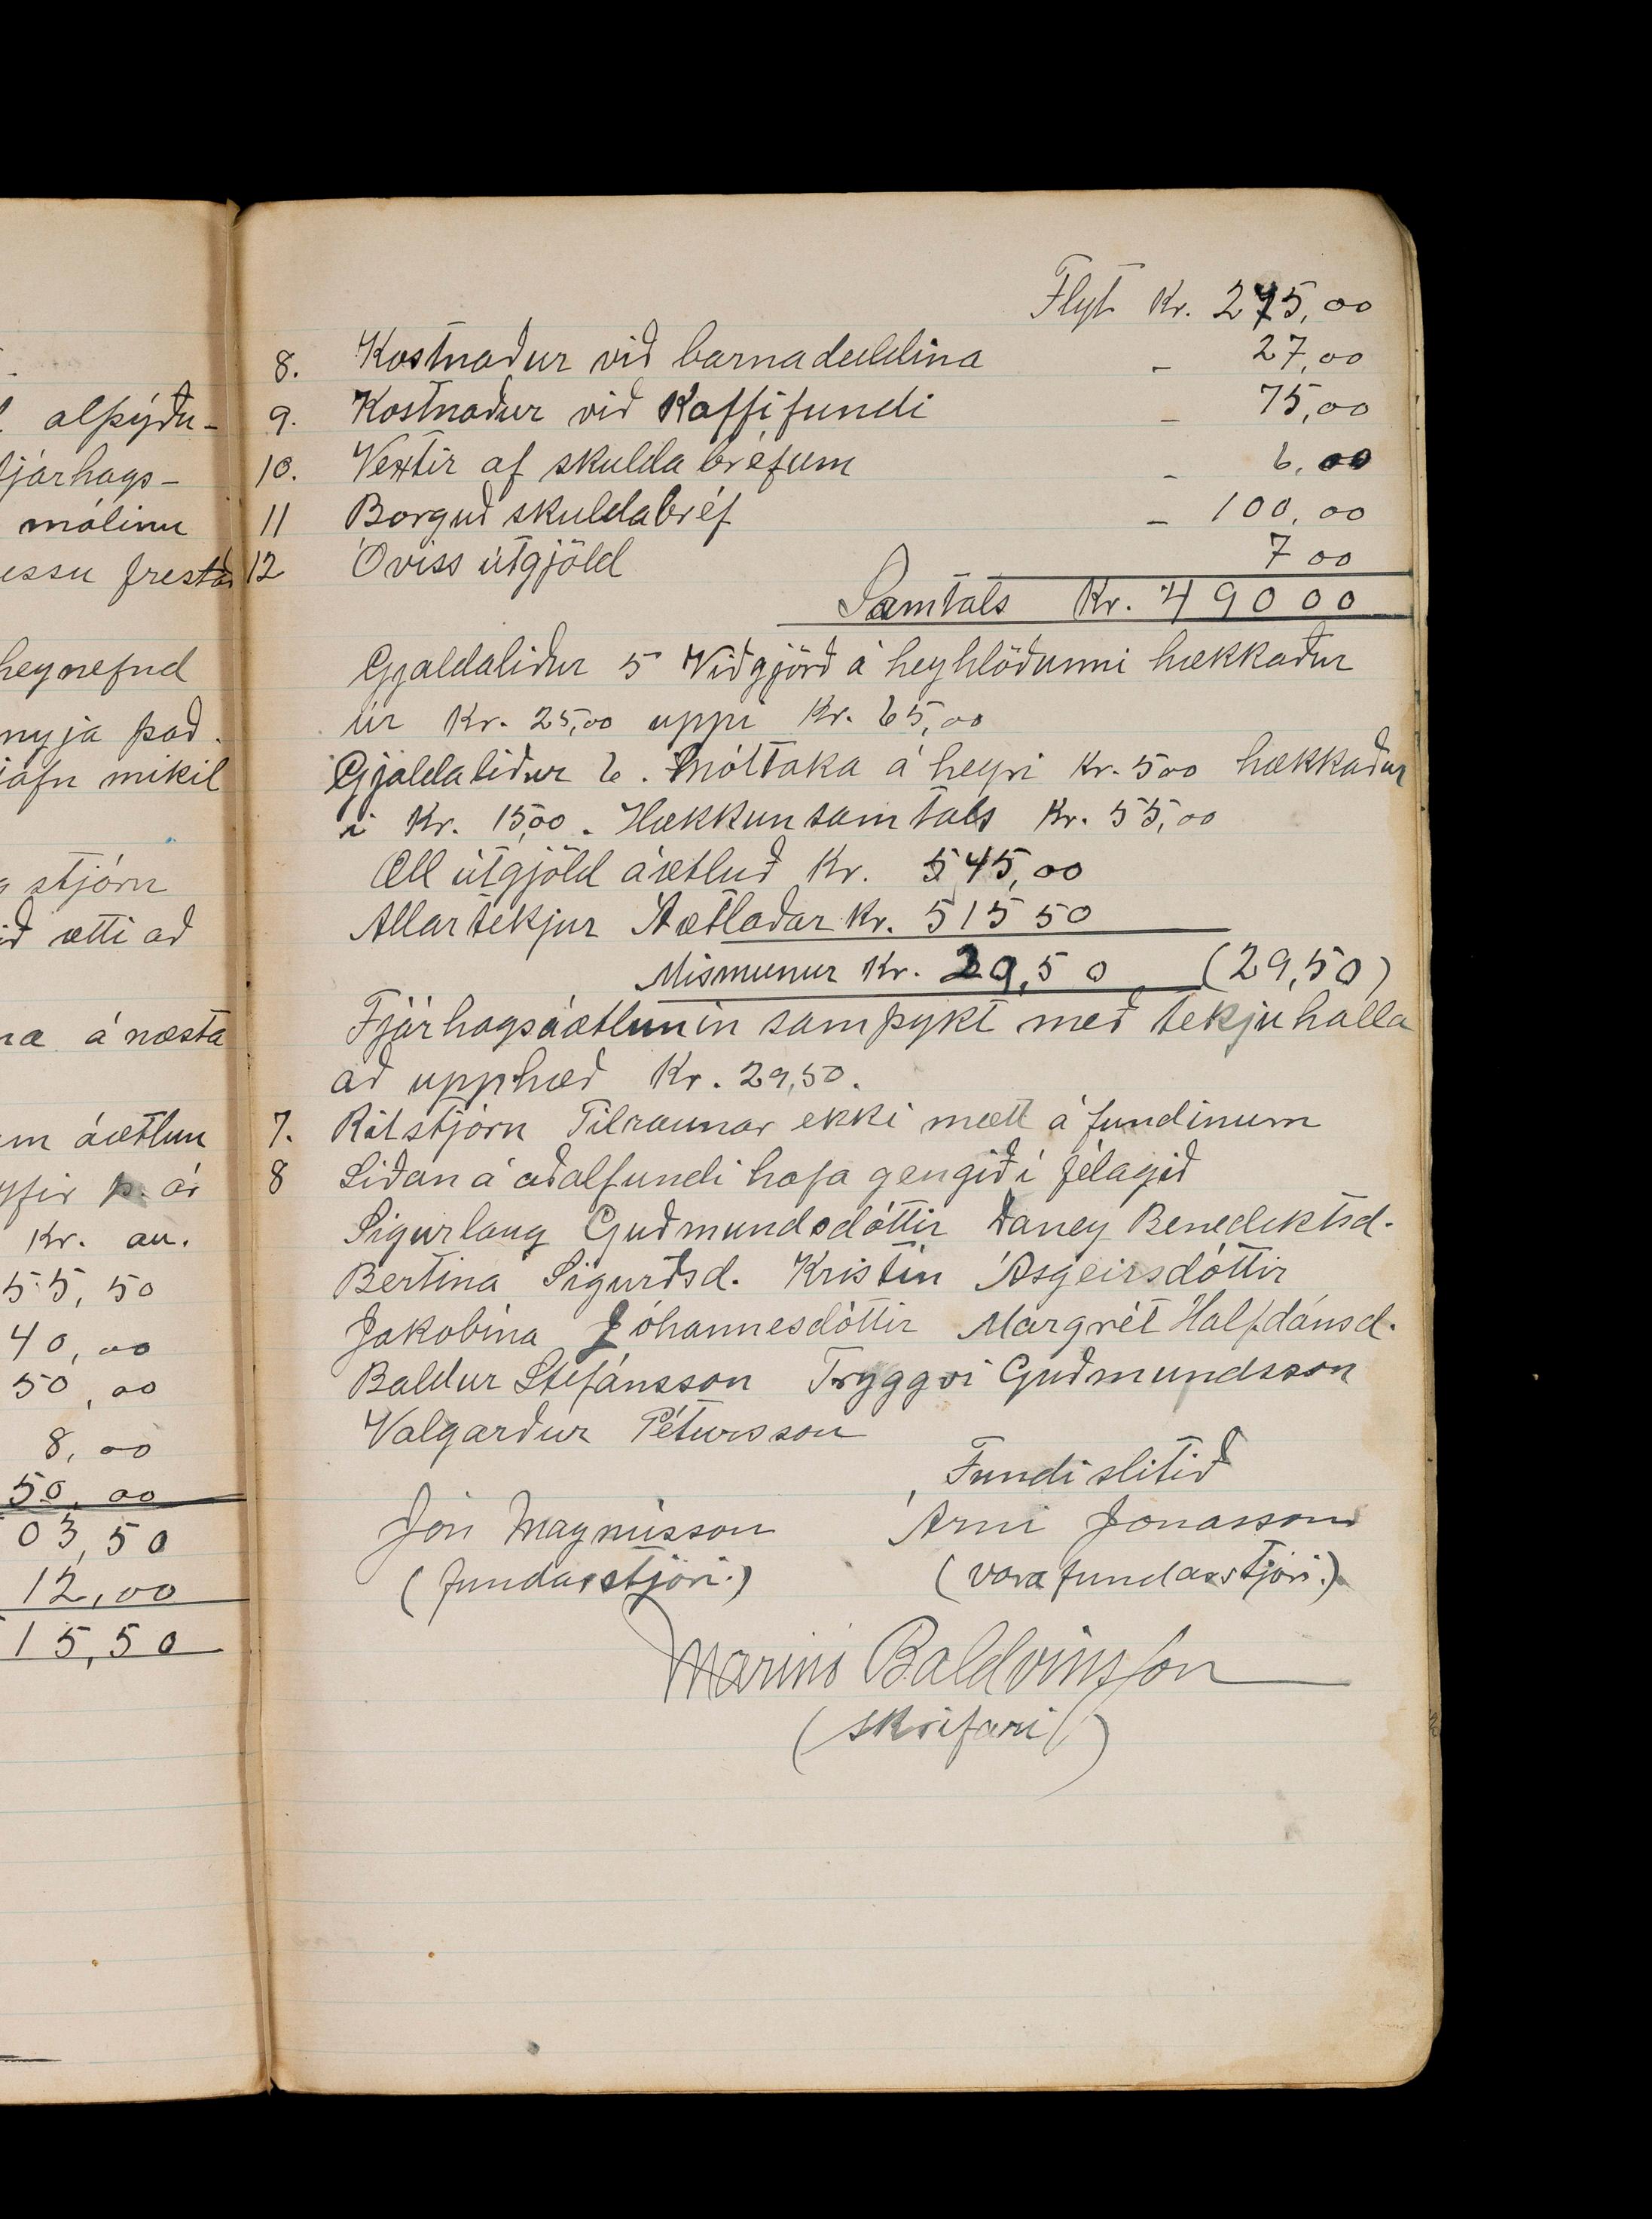 alþýðu-
fjárhags-
málinu
essu frestað
heynefnd
nyja það.
jafn mikil
stjórn
ið ætti að
á næsta
áætlun
yfir þ. ár
Kr. au.
55,50
40,00
50,00
8,00
50,00
03,50
12,00
15,50
Flyt Kr. 275,00
8. Kostnaður við barnadeildina - 27,00
9. Kostnaður við Kaffifundi - 75,00
10. Vextir af skuldabréfum - 6,00
11 Borguð skuldabréf - 100,00
12 Óviss útgjöld 7 00
Samtals Kr. 490 00
Gjaldaliður 5 Viðgjörð á heyhlöðunni hækkaður
úr Kr. 25,00 uppí Kr. 65,00
Gjaldaliður 6. Móttaka á heyi Kr. 5 00 hækkaður
í Kr. 15,00. Hækkun samtals Kr. 55,00
Öll útgjöld áætluð Kr. 545,00
Allar tekjur Áætlaðar Kr. 515 50
Mismunur Kr. 29,50 (29,50)
Fjárhagsáætlunin samþykt með tekjuhalla
að upphæð Kr. 29,50.
7. Ritstjórn Tilraunar ekki mætt á fundinum
8 Síðan á aðalfundi hafa gengið í félagið
Sigurlaug Guðmundsdóttir Daney Benediktsd.
Bertína Sigurðsd. Kristín Ásgeirsdóttir
Jakobína Jóhannesdóttir Margrét Halfdánsd.
Baldur Stefánsson Tryggvi Guðmundsson
Valgarður Pétursson
Fundi slitið
Jón Magnússon Árni Jónasson
(fundarstjóri.) (varafundarstjóri.)
Marinó Baldvinsson
(skrifari)